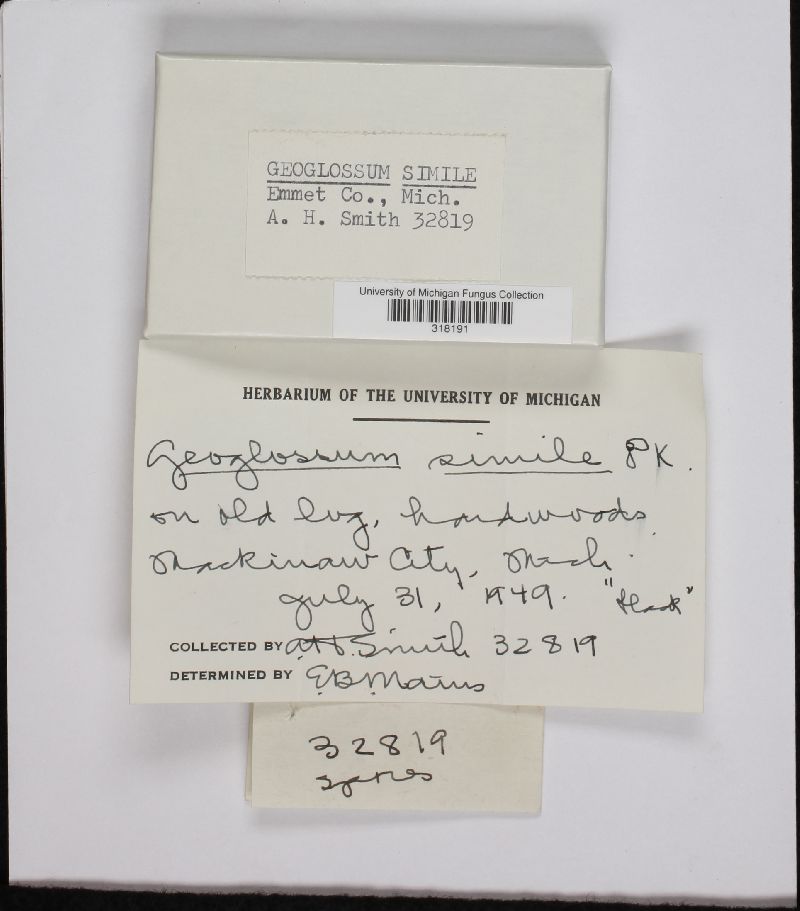 GEOGLOSSUM SIMILE
Emmet Co., Mich.
A. H. Smith 32819
University of Michigan Fungus Collection
318191
HERBARIUM OF THE UNIVERSITY OF MICHIGAN
Geoglossum simile PK.
on old log, hardwoods
Mackinaw City, Mich.
July 31, 1949. "black"
COLLECTED BY A.H. Smith 32819
DETERMINED BY E.B. Mains
32819
spores